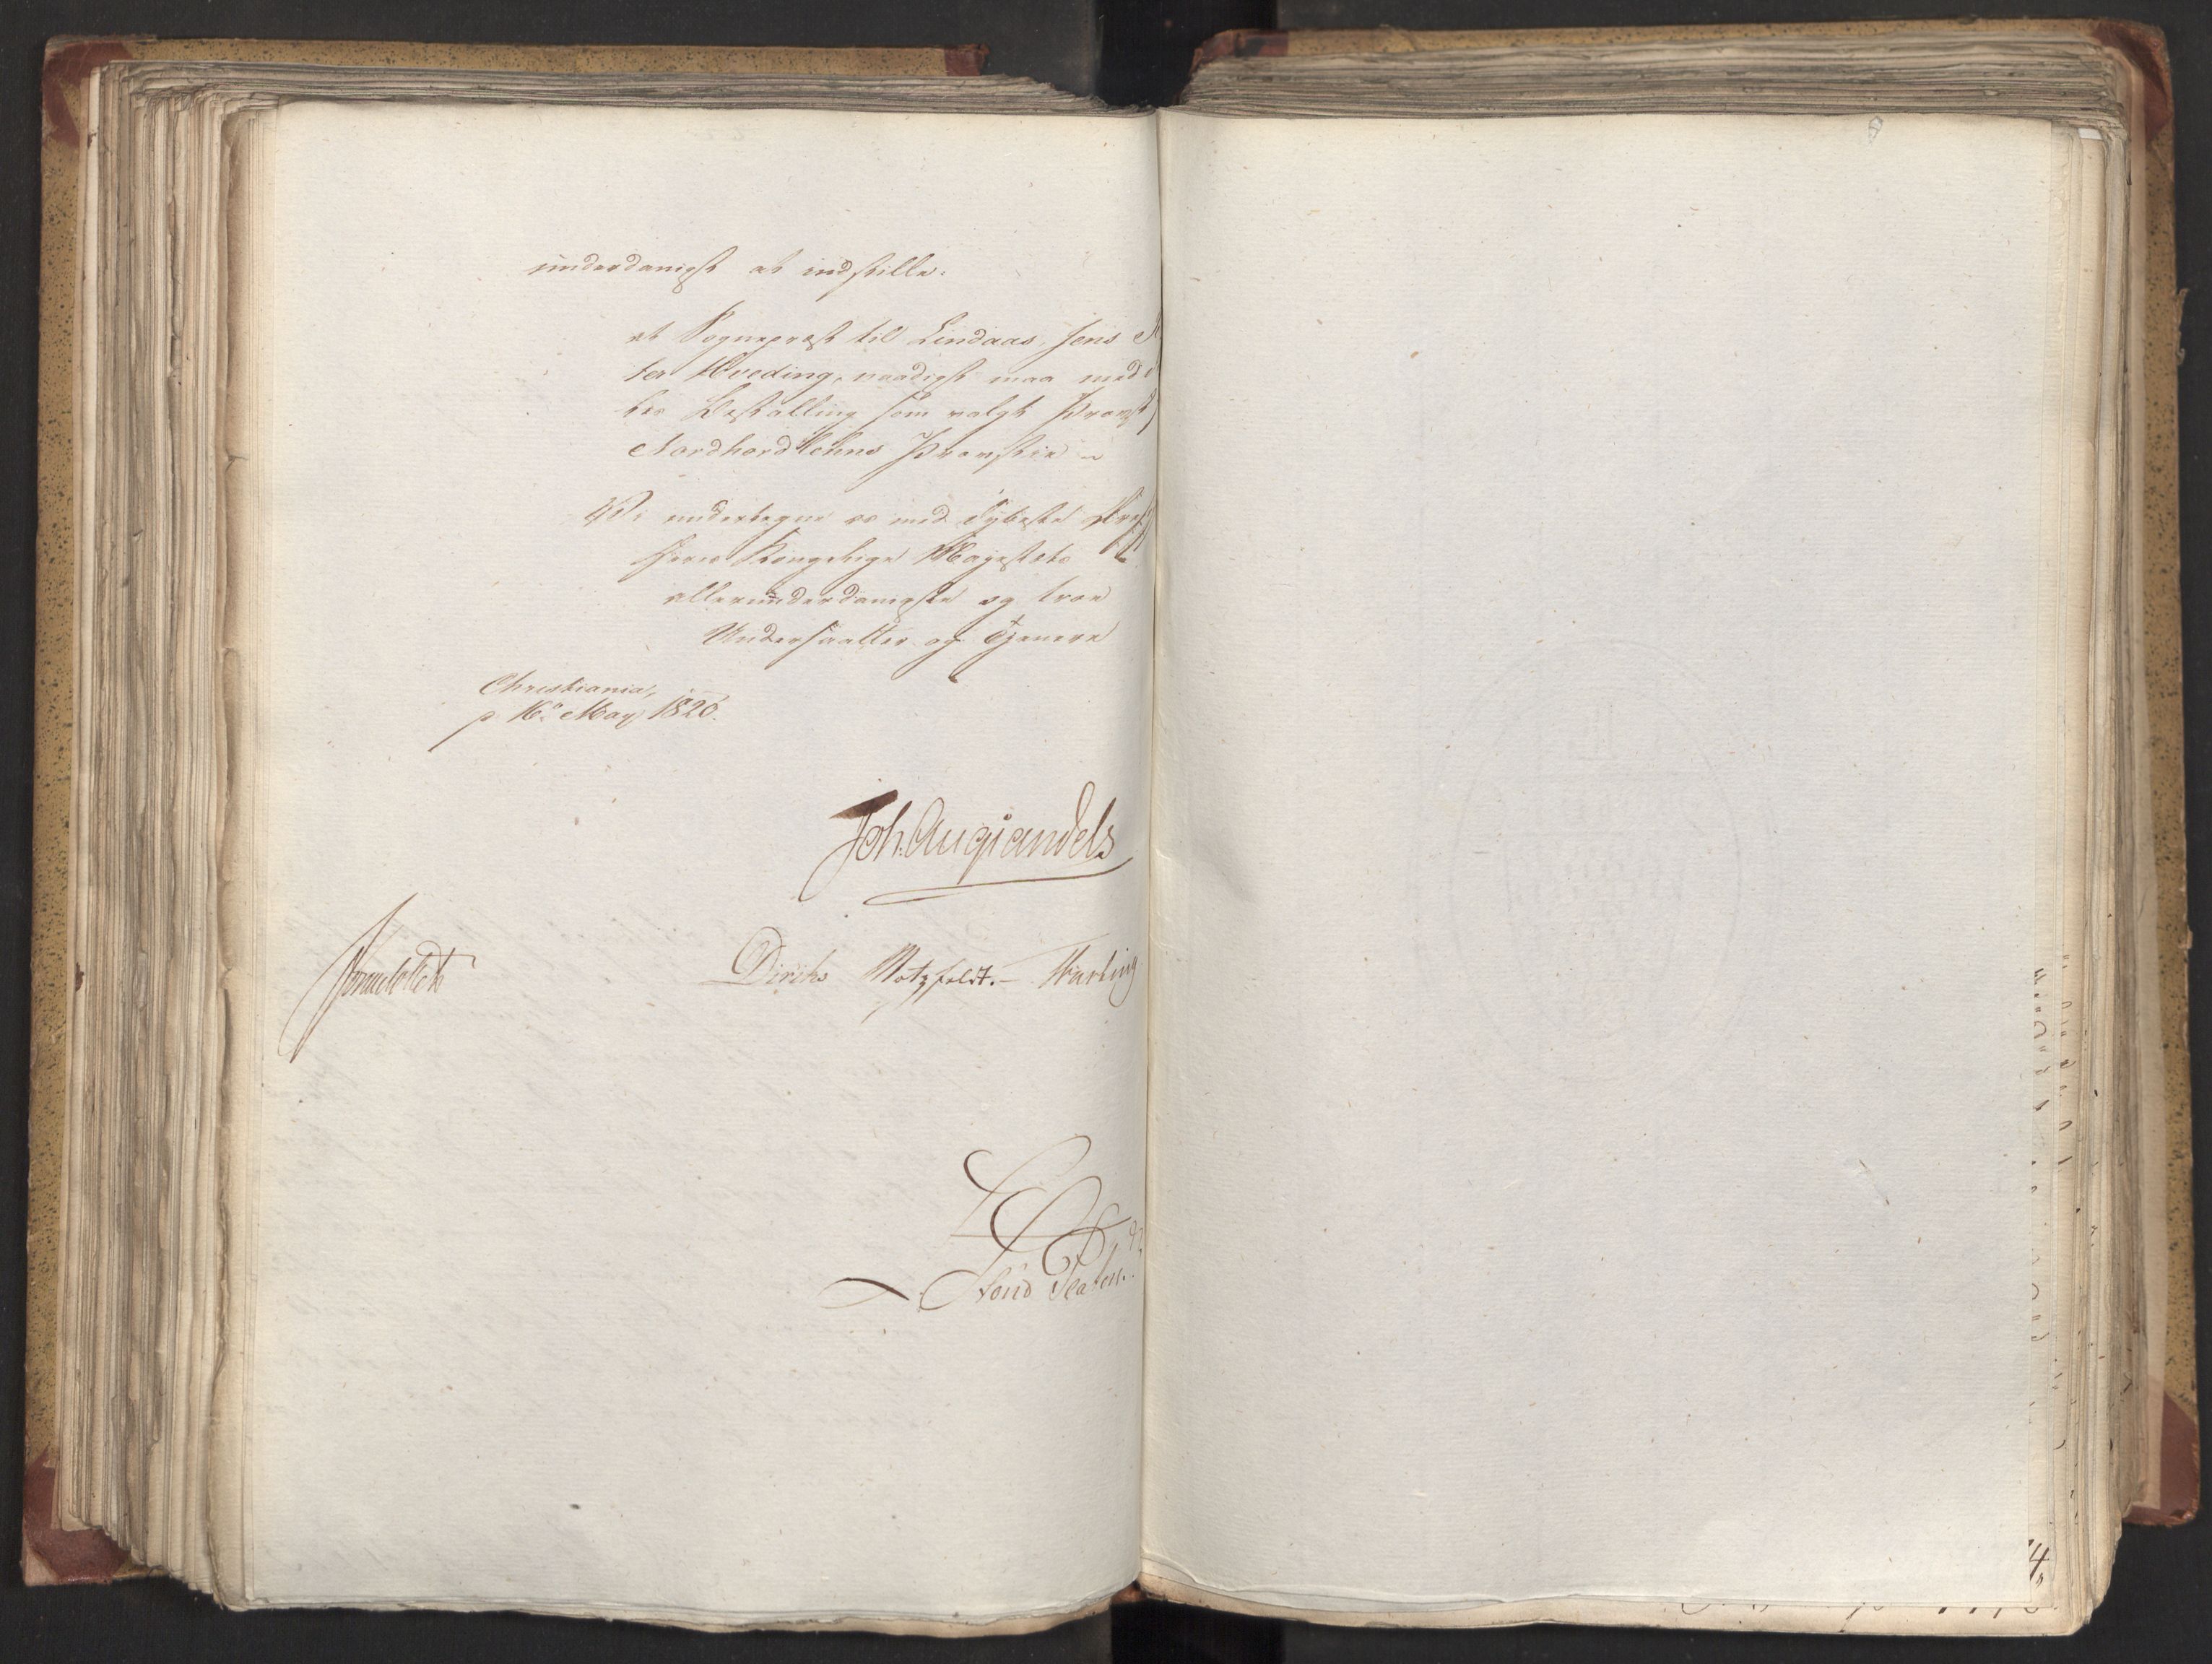 underdanigst at indstille:
at Sognepræst til Lindaas, Jens
ter Hveding, naadigst maa med
les Bestalling som valgt Provst
Nordhordlehns Provstie
Vi undertegne os med dybeste
Deres Kongelige Majestæts
allerunderdanigste og troe
Undersaatter og Tjenere
Christiania,
p 16de May 1820.
Joh. Aug Sandels
Sommerfeldt
Diriks Motzfeldt. Harling
4.